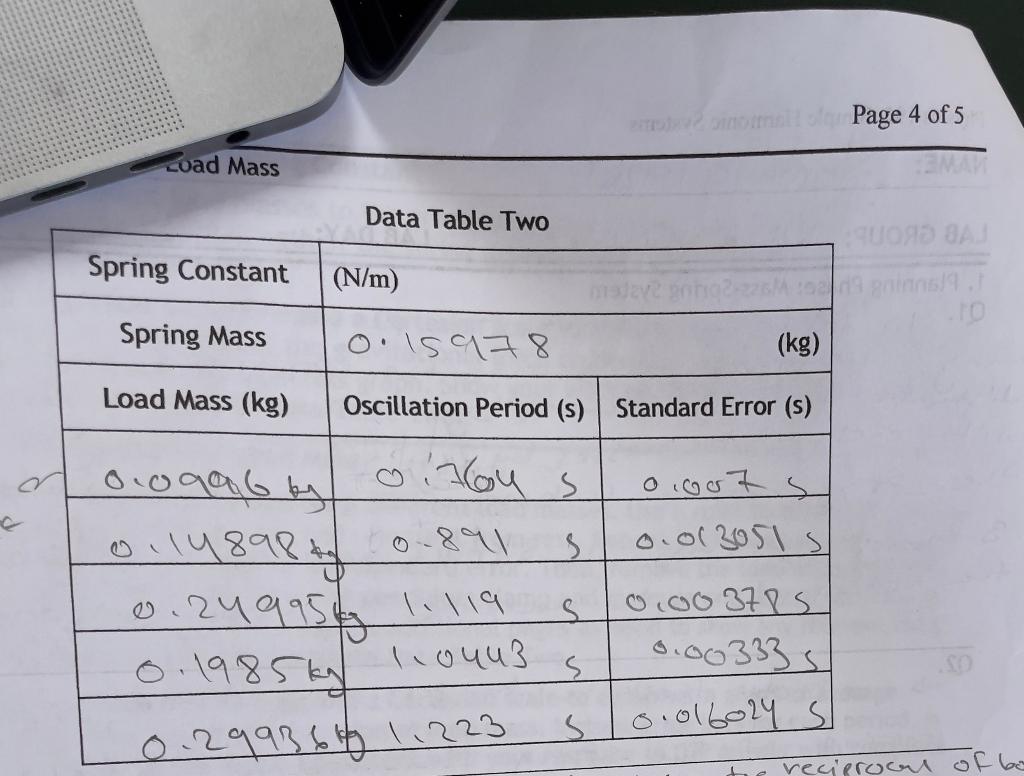 Page 4 of 5
Load Mass
Data Table Two
Spring Constant (N/m)
Spring Mass 0.15978 (kg)
Load Mass (kg) Oscillation Period (s) Standard Error (s)
0.0996 kg 0.7604 s 0.007 s
0.14898 kg 0.891 s 0.013051 s
0.24995 kg 1.119 s 0.00378 s
0.1985 kg 1.0443 s 0.00333 s
0.29936 kg 1.223 s 0.016024 s
reciprocal of